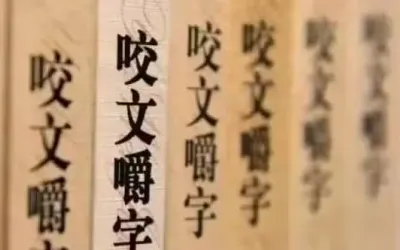 咬文嚼字
咬文嚼字
咬文嚼字
咬文嚼字
咬文嚼字
咬文嚼字